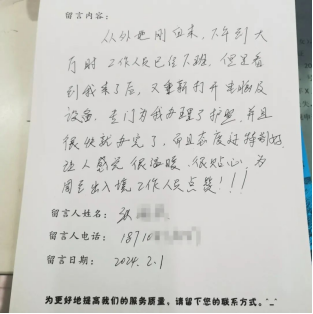 留言内容:
从外地刚回来,下午到大
厅时工作人员已经下班,但是看
到我来了后,又重新打开电脑及
设备,专门为我办理了护照,并且
很快就办完了,而且态度还特别好
让人感觉很温暖、很贴心,为
周至出入境工作人员点赞!!!
留言人姓名:
留言人电话:1871
留言日期:2024.2.1
为更好地提高我们的服务质量,请留下您的联系方式。^_^